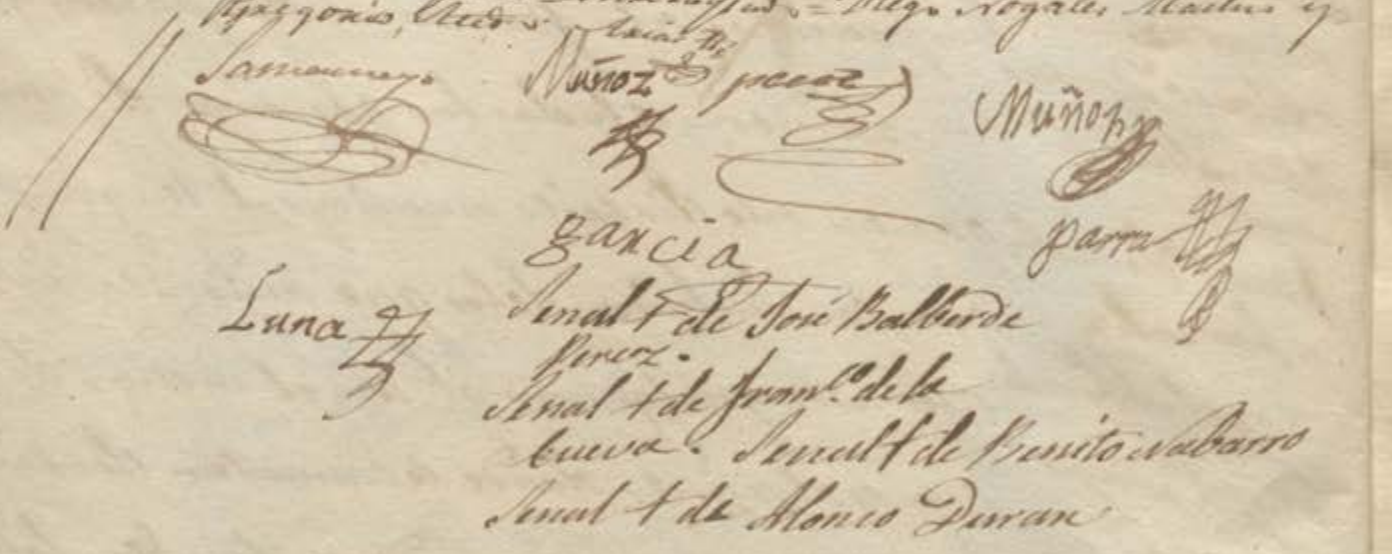 Gregorio, = Diego Nogales Macias y
Muñoz perez
Muñoz
garcia
parra
Luna
Senal + de José Balberde
Perez.
Senal + de Franco. de la
Cueva. Senal + de Benito Nabarro
Senal + de Alonso Duran